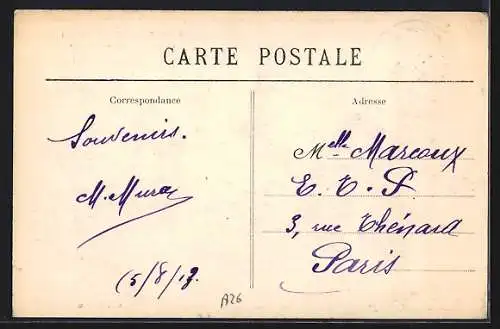 CARTE POSTALE
Correspondance
Souvenirs.
M. Murat
15/8/17.
Adresse
Melle Marcoux
E. T. P
3, rue Thénard
Paris
A26